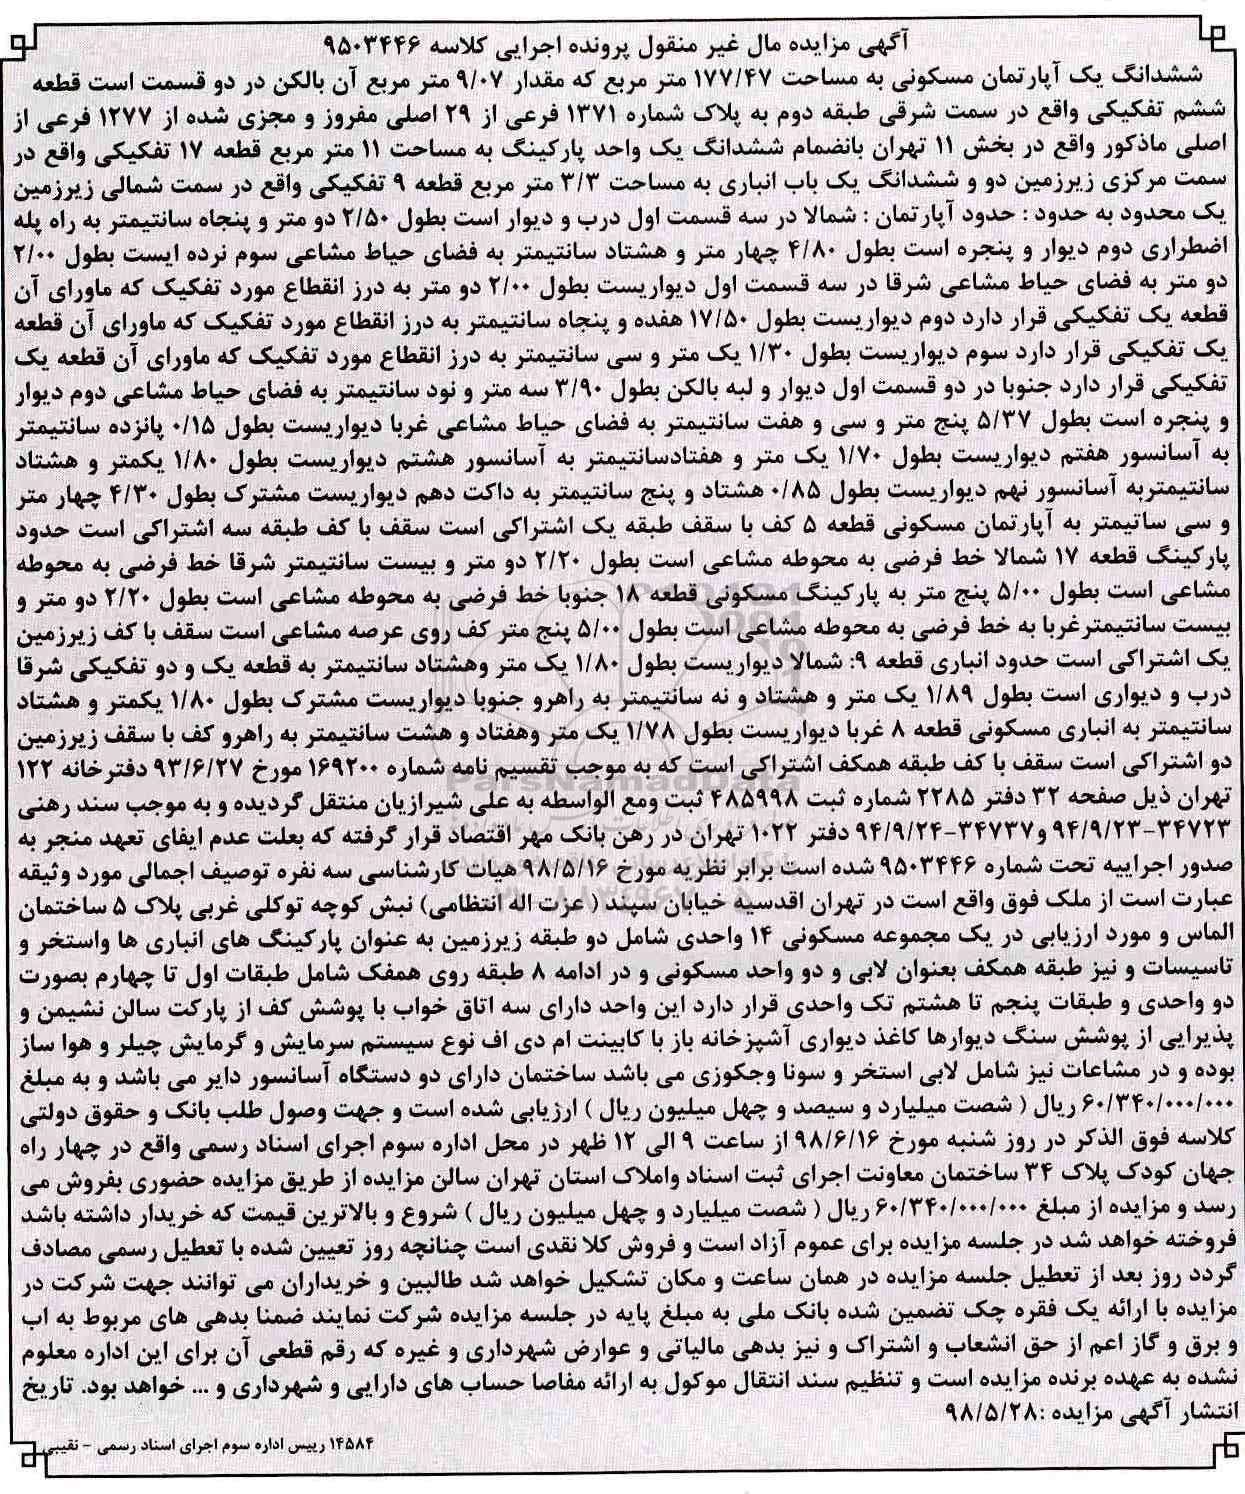 آگهی مزایده مال غیر منقول پرونده اجرایی کلاسه ۹۵۰۳۴۴۶
ششدانگ یک آپارتمان مسکونی به مساحت ۱۷۷/۴۷ متر مربع که مقدار ۹/۰۷ متر مربع آن بالکن در دو قسمت است قطعه
ششم تفکیکی واقع در سمت شرقی طبقه دوم به پلاک شماره ۱۳۷۱ فرعی از ۲۹ اصلی مفروز و مجزی شده از ۱۲۷۷ فرعی از
اصلی ماذکور واقع در بخش ۱۱ تهران بانضمام ششدانگ یک واحد پارکینگ به مساحت ۱۱ متر مربع قطعه ۱۷ تفکیکی واقع در
سمت مرکزی زیرزمین دو و ششدانگ یک باب انباری به مساحت ۳/۳ متر مربع قطعه ۹ تفکیکی واقع در سمت شمالی زیرزمین
یک محدود به حدود : حدود آپارتمان : شمالا در سه قسمت اول درب و دیوار است بطول ۲/۵۰ دو متر و پنجاه سانتیمتر به راه پله
اضطراری دوم دیوار و پنجره است بطول ۴/۸۰ چهار متر و هشتاد سانتیمتر به فضای حیاط مشاعی سوم نرده ایست بطول ۲/۰۰
دو متر به فضای حیاط مشاعی شرقا در سه قسمت اول دیواریست بطول ۲/۰۰ دو متر به درز انقطاع مورد تفکیک که ماورای آن
قطعه یک تفکیکی قرار دارد دوم دیواریست بطول ۱۷/۵۰ هفده و پنجاه سانتیمتر به درز انقطاع مورد تفکیک که ماورای آن قطعه
یک تفکیکی قرار دارد سوم دیواریست بطول ۱/۳۰ یک متر و سی سانتیمتر به درز انقطاع مورد تفکیک که ماورای آن قطعه یک
تفکیکی قرار دارد جنوبا در دو قسمت اول دیوار و لبه بالکن بطول ۳/۹۰ سه متر و نود سانتیمتر به فضای حیاط مشاعی دوم دیوار
و پنجره است بطول ۵/۳۷ پنج متر و سی و هفت سانتیمتر به فضای حیاط مشاعی غربا دیواریست بطول ۰/۱۵ پانزده سانتیمتر
به آسانسور هفتم دیواریست بطول ۱/۷۰ یک متر و هفتادسانتیمتر به آسانسور هشتم دیواریست بطول ۱/۸۰ یکمتر و هشتاد
سانتیمتربه آسانسور نهم دیواریست بطول ۰/۸۵ هشتاد و پنج سانتیمتر به داکت دهم دیواریست مشترک بطول ۴/۳۰ چهار متر
و سی ساتیمتر به آپارتمان مسکونی قطعه ۵ کف با سقف طبقه یک اشتراکی است سقف با کف طبقه سه اشتراکی است حدود
پارکینگ قطعه ۱۷ شمالا خط فرضی به محوطه مشاعی است بطول ۲/۲۰ دو متر و بیست سانتیمتر شرقا خط فرضی به محوطه
مشاعی است بطول ۵/۰۰ پنج متر به پارکینگ مسکونی قطعه ۱۸ جنوبا خط فرضی به محوطه مشاعی است بطول ۲/۲۰ دو متر و
بیست سانتیمترغربا به خط فرضی به محوطه مشاعی است بطول ۵/۰۰ پنج متر کف روی عرصه مشاعی است سقف با کف زیرزمین
یک اشتراکی است حدود انباری قطعه ۹: شمالا دیواریست بطول ۱/۸۰ یک متر وهشتاد سانتیمتر به قطعه یک و دو تفکیکی شرقا
درب و دیواری است بطول ۱/۸۹ یک متر و هشتاد و نه سانتیمتر به راهرو جنوبا دیواریست مشترک بطول ۱/۸۰ یکمتر و هشتاد
سانتیمتر به انباری مسکونی قطعه ۸ غربا دیواریست بطول ۱/۷۸ یک متر وهفتاد و هشت سانتیمتر به راهرو کف با سقف زیرزمین
دو اشتراکی است سقف با کف طبقه همکف اشتراکی است که به موجب تقسیم نامه شماره ۱۶۹۲۰۰ مورخ ۹۳/۶/۲۷ دفترخانه ۱۲۲
تهران ذیل صفحه ۳۲ دفتر ۲۲۸۵ شماره ثبت ۴۸۵۹۹۸ ثبت ومع الواسطه به علی شیرازیان منتقل گردیده و به موجب سند رهنی
۳۴۷۲۳-۹۴/۹/۲۳ و۳۴۷۳۷-۹۴/۹/۲۴ دفتر ۱۰۲۲ تهران در رهن بانک مهر اقتصاد قرار گرفته که بعلت عدم ایفای تعهد منجر به
صدور اجراییه تحت شماره ۹۵۰۳۴۴۶ شده است برابر نظریه مورخ ۹۸/۵/۱۶ هیات کارشناسی سه نفره توصیف اجمالی مورد وثیقه
عبارت است از ملک فوق واقع است در تهران اقدسیه خیابان سپند ( عزت اله انتظامی) نبش کوچه توکلی غربی پلاک ۵ ساختمان
الماس و مورد ارزیابی در یک مجموعه مسکونی ۱۴ واحدی شامل دو طبقه زیرزمین به عنوان پارکینگ های انباری ها واستخر و
تاسیسات و نیز طبقه همکف بعنوان لابی و دو واحد مسکونی و در ادامه ۸ طبقه روی همفک شامل طبقات اول تا چهارم بصورت
دو واحدی و طبقات پنجم تا هشتم تک واحدی قرار دارد این واحد دارای سه اتاق خواب با پوشش کف از پارکت سالن نشیمن و
پذیرایی از پوشش سنگ دیوارها کاغذ دیواری آشپزخانه باز با کابینت ام دی اف نوع سیستم سرمایش و گرمایش چیلر و هوا ساز
بوده و در مشاعات نیز شامل لابی استخر و سونا وجکوزی می باشد ساختمان دارای دو دستگاه آسانسور دایر می باشد و به مبلغ
۶۰/۳۴۰/۰۰۰/۰۰۰ ریال ( شصت میلیارد و سیصد و چهل میلیون ریال ) ارزیابی شده است و جهت وصول طلب بانک و حقوق دولتی
کلاسه فوق الذکر در روز شنبه مورخ ۹۸/۶/۱۶ از ساعت ۹ الی ۱۲ ظهر در محل اداره سوم اجرای اسناد رسمی واقع در چهار راه
جهان کودک پلاک ۳۴ ساختمان معاونت اجرای ثبت اسناد واملاک استان تهران سالن مزایده از طریق مزایده حضوری بفروش می
رسد و مزایده از مبلغ ۶۰/۳۴۰/۰۰۰/۰۰۰ ریال ( شصت میلیارد و چهل میلیون ریال ) شروع و بالاترین قیمت که خریدار داشته باشد
فروخته خواهد شد در جلسه مزایده برای عموم آزاد است و فروش کلا نقدی است چنانچه روز تعیین شده با تعطیل رسمی مصادف
گردد روز بعد از تعطیل جلسه مزایده در همان ساعت و مکان تشکیل خواهد شد طالبین و خریداران می توانند جهت شرکت در
مزایده با ارائه یک فقره چک تضمین شده بانک ملی به مبلغ پایه در جلسه مزایده شرکت نمایند ضمنا بدهی های مربوط به اب
و برق و گاز اعم از حق انشعاب و اشتراک و نیز بدهی مالیاتی و عوارض شهرداری و غیره که رقم قطعی آن برای این اداره معلوم
نشده به عهده برنده مزایده است و تنظیم سند انتقال موکول به ارائه مفاصا حساب های دارایی و شهرداری و ... خواهد بود. تاریخ
انتشار آگهی مزایده :۹۸/۵/۲۸
۱۴۵۸۴ رییس اداره سوم اجرای اسناد رسمی - نقیبی
ParsNamadData